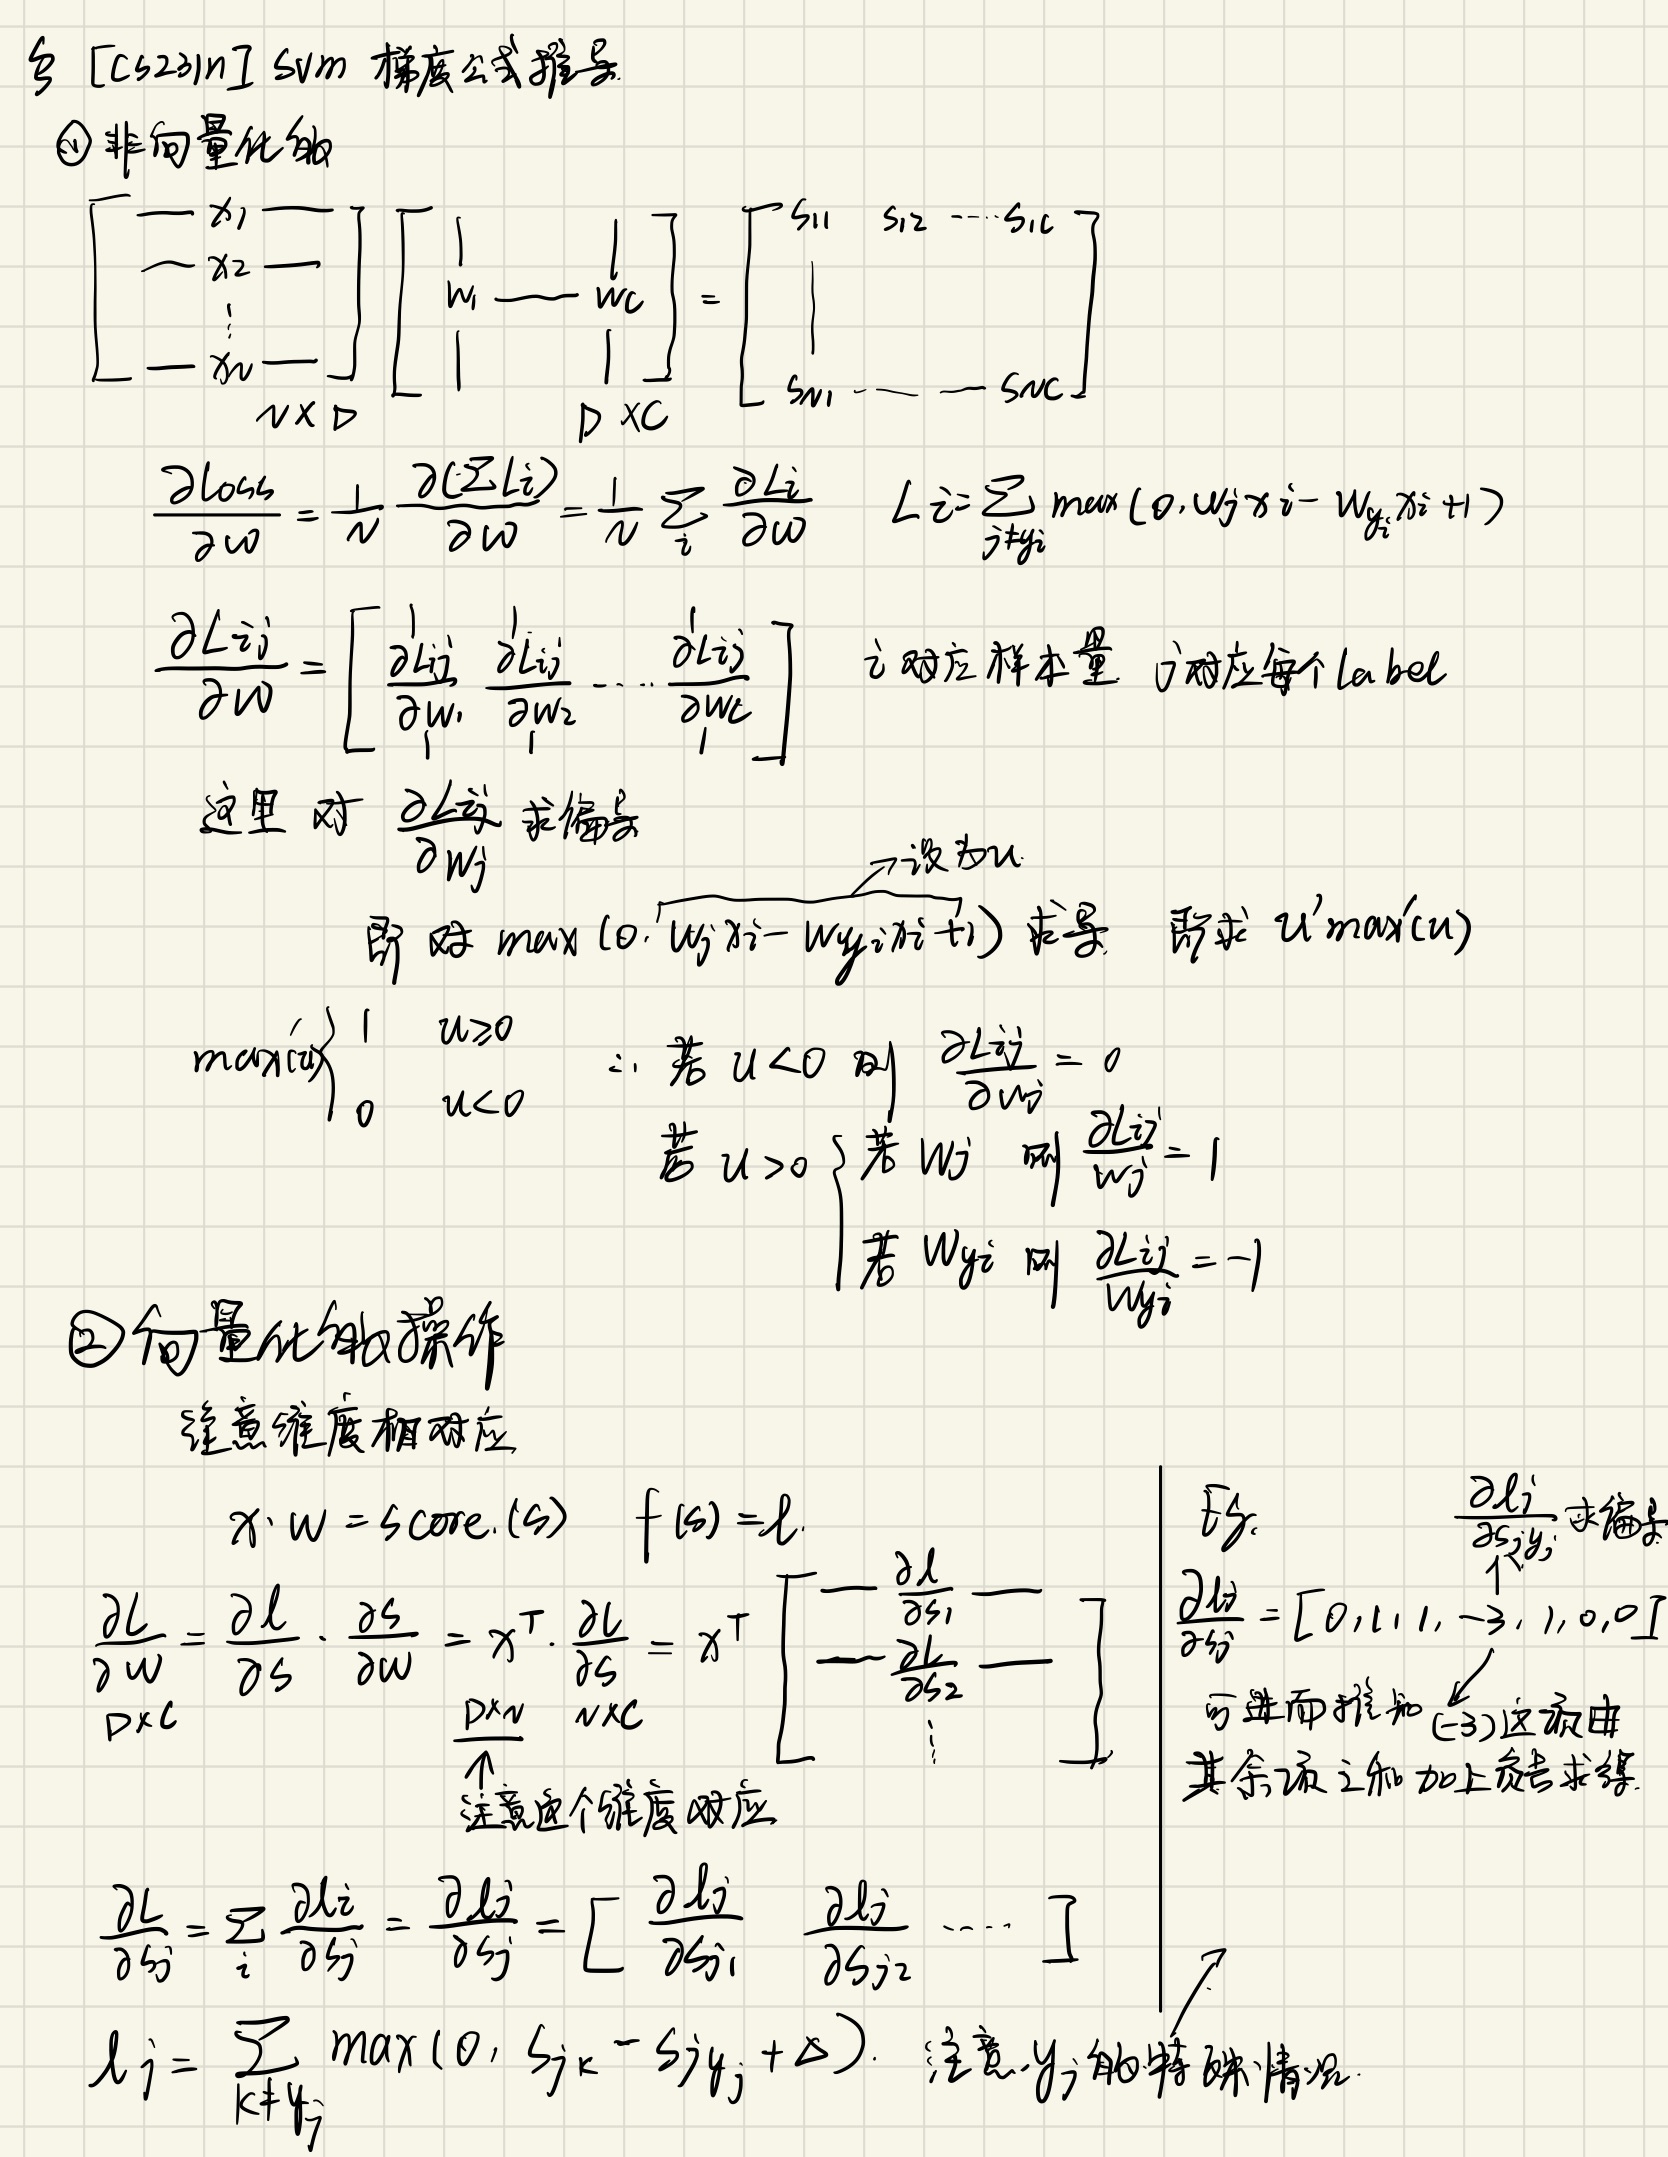 § [CS231n] SVM 梯度公式推导
① 非向量化的
[ — x₁ — ; — x₂ — ; ⋮ ; — x_N — ] [ | w₁ | — | w_C | ] = [ s₁₁ s₁₂ ---- s₁C ; | ; s_N1 ---- s_NC ]
N×D D×C
∂Loss/∂W = 1/N ∂(ΣLi)/∂W = 1/N Σ_i ∂Li/∂W Li = Σ_{j≠yi} max(0, wj xi − w_{yi} xi + 1)
∂Lij/∂W = [ ∂Lij/∂w₁ ∂Lij/∂w₂ ---- ∂Lij/∂wC ] i 对应样本量 j 对应每个 label
这里 对 ∂Lij/∂wj 求偏导
→设为u
即 对 max(0, wj xi − w_{yi} xi + 1) 求导 即求 u'max'(u)
max'(u) { 1 u≥0
0 u<0
∴ 若 u<0 则 ∂Lij/∂wj = 0
若 u>0 { 若 wj 则 ∂Lij/wj = 1
若 w_{yi} 则 ∂Lij/w_{yi} = −1
② 向量化的操作
注意维度相对应
x·w = score.(s) f(s) = l.
∂L/∂W = ∂l/∂s · ∂s/∂W = xᵀ · ∂L/∂s = xᵀ [ — ∂l/∂s₁ — ; — ∂L/∂s₂ — ; ⋮ ]
D×C D×N N×C
↑
注意这个维度对应
∂L/∂sj = Σ_i ∂li/∂sj = ∂lj/∂sj = [ ∂lj/∂sj₁ ∂lj/∂sj₂ ---- ]
lj = Σ_{k≠yj} max(0, s_{jk} − s_{jyj} + Δ). 注意 yj 的特殊情况.
Eg. ∂lj/∂s_{jyj} 求偏导
∂lj/∂sj = [0, 1, 1, −3, 1, 0, 0]
可进而推知 (−3)这项由
其余项之和加上负号求得